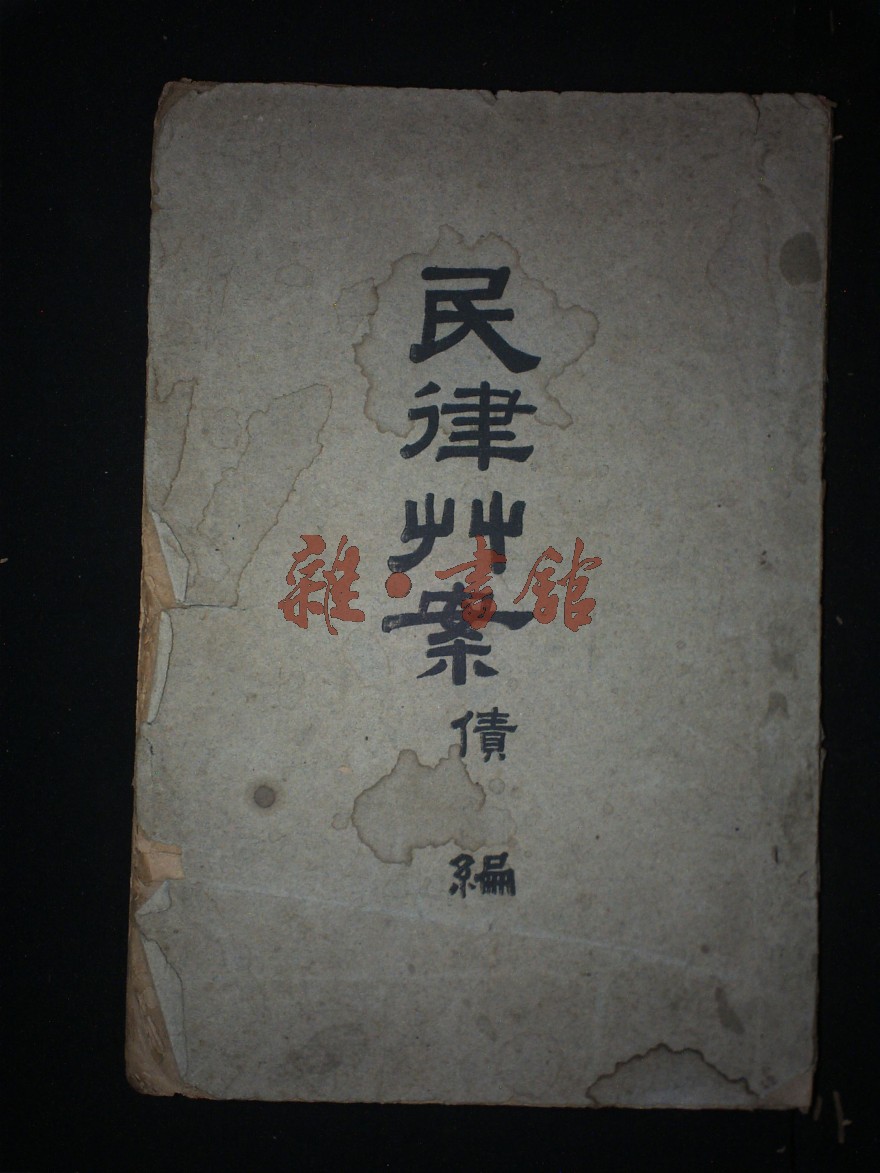 民律艸案
債編
雜·書館